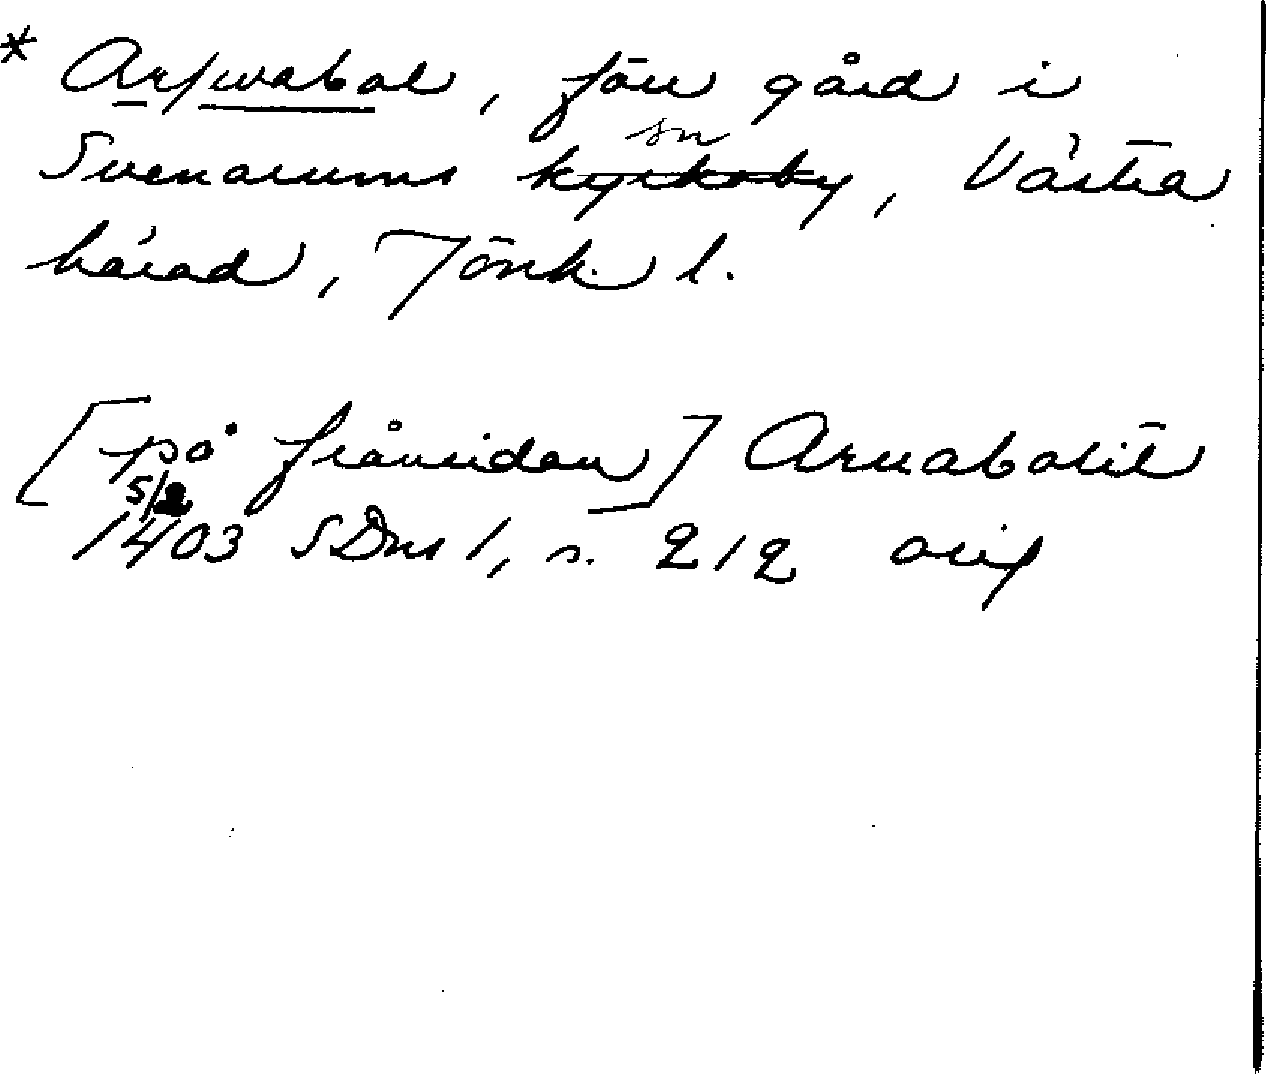 * Ar/wabol, förr gård i
Svenarums sn, Västra
härad, Jönk. l.
[på frånsidan] Aruabolit
5/2
1403 SDns 1, s. 212 orig